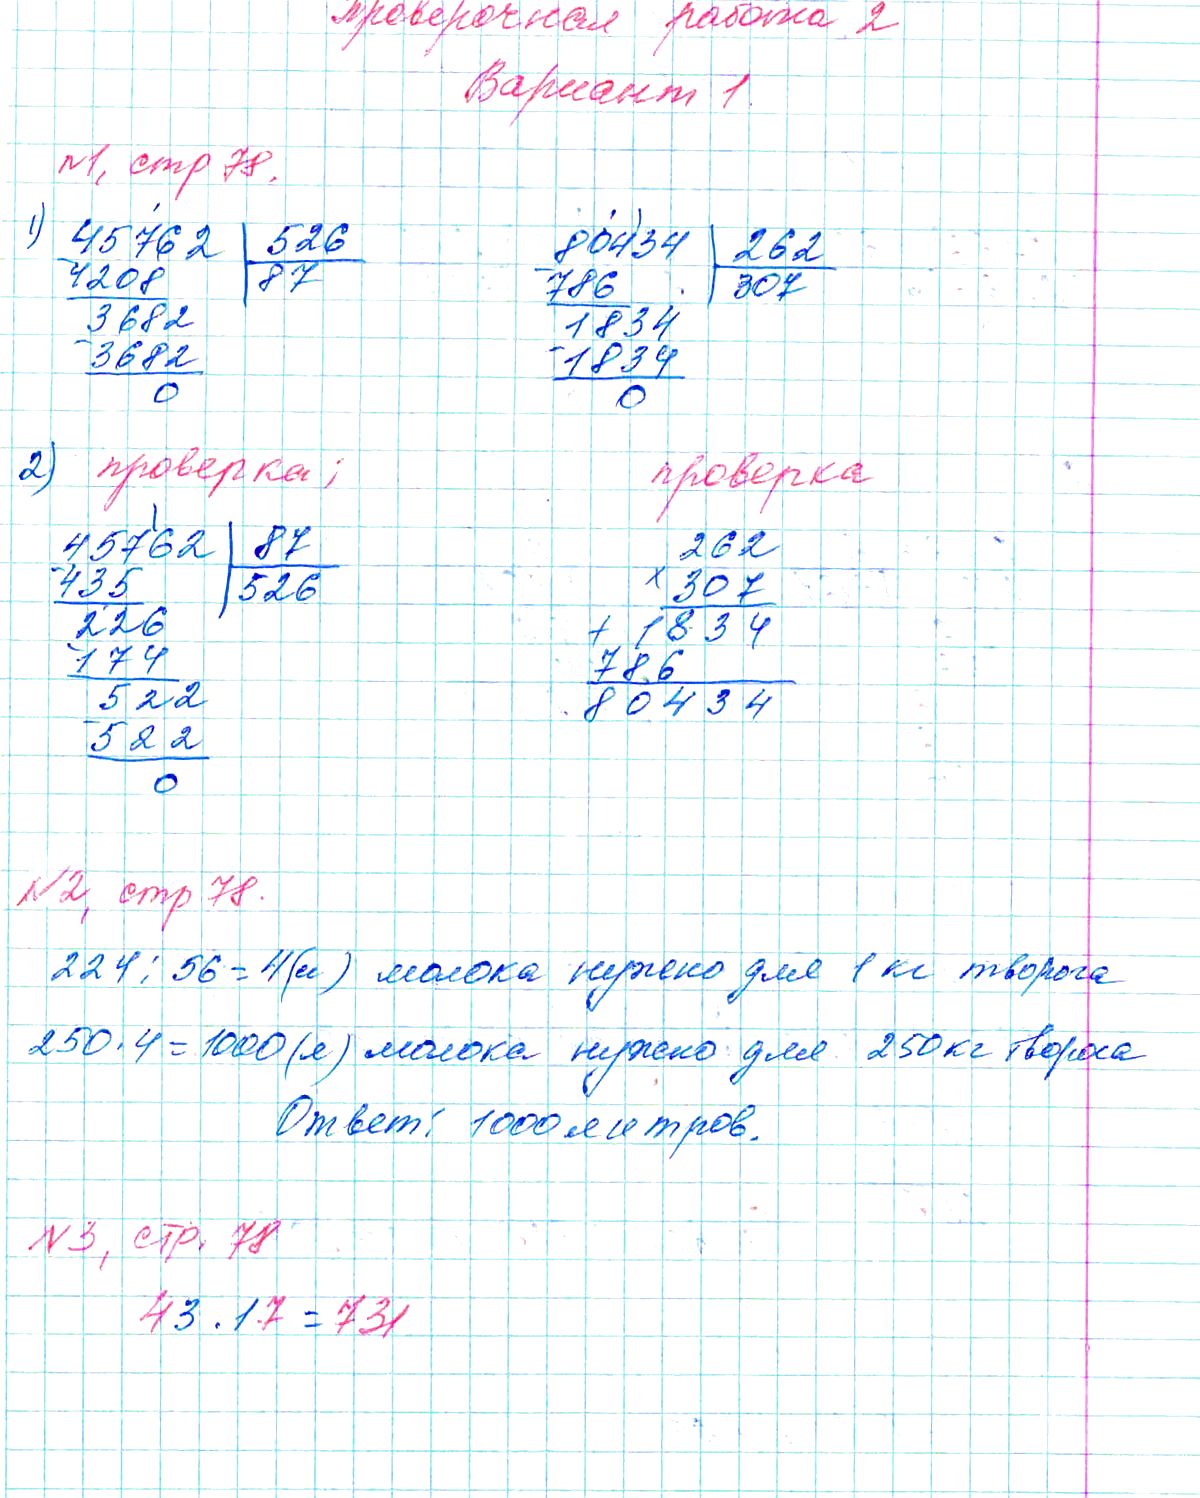 Проверочная работа 2
Вариант 1
№1, стр 78.
1) 45762 | 526    80434 | 262
-4208 | 87    -786 | 307
3682    1834
-3682    -1834
0    0
2) проверка:    проверка
45762 | 87    262
-435 | 526    × 307
226    + 1834
-174    786
522    80434
-522
0
№2, стр 78.
224 : 56 = 4(л) молока нужно для 1 кг творога
250 · 4 = 1000 (л) молока нужно для 250 кг творога
Ответ: 1000 литров.
№3, стр. 78
43 · 17 = 731